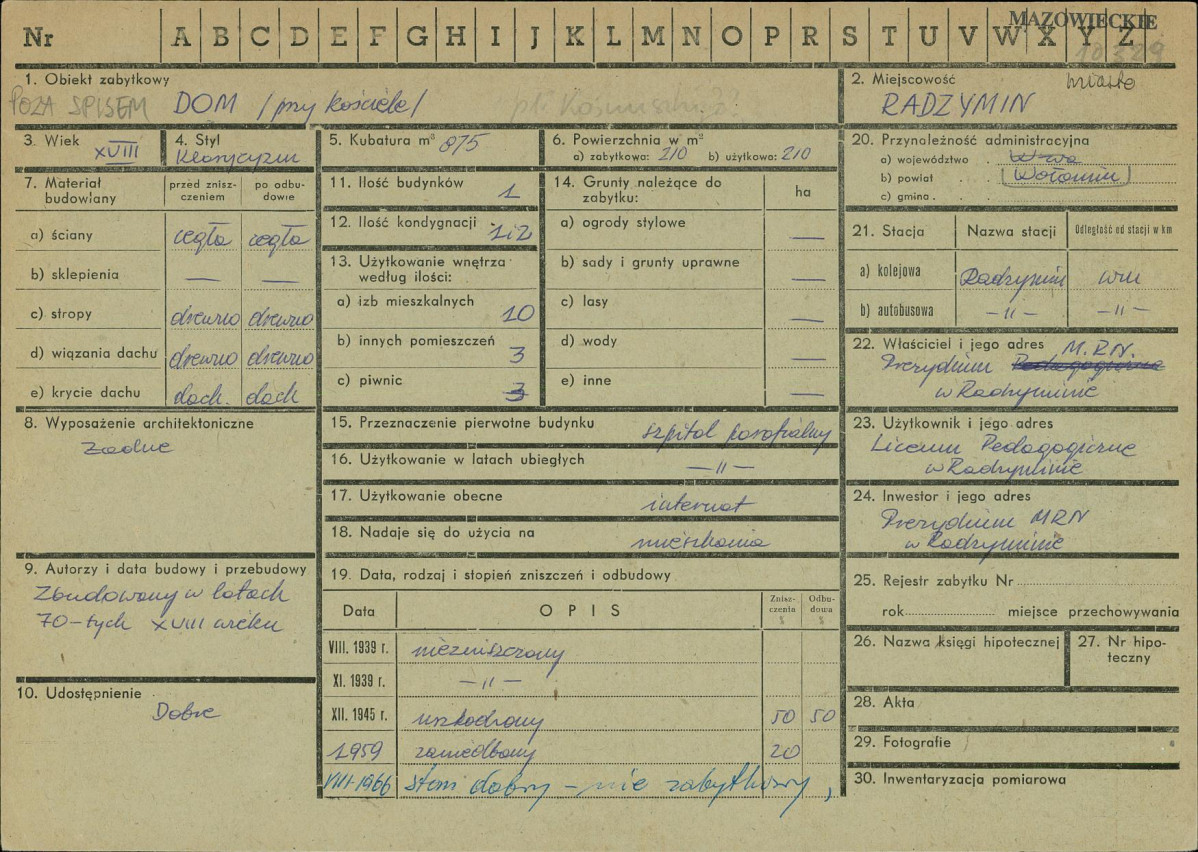 MAZOWIECKIE
Nr A B C D E F G H I J K L M N O P R S T U V W X Y Z
10329
1. Obiekt zabytkowy
POZA SPISEM DOM /przy kościele/
2. Miejscowość miasto
RADZYMIN
3. Wiek XVIII
4. Styl Klasycyzm
5. Kubatura m³ 875
6. Powierzchnia w m²
a) zabytkowa: 210 b) użytkowa: 210
7. Materiał budowiany
przed znisz-
czeniem
po odbu-
dowie
a) ściany cegła cegła
b) sklepienia — —
c) stropy drewno drewno
d) wiązania dachu drewno drewno
e) krycie dachu dach. dach
8. Wyposażenie architektoniczne
Żadne
9. Autorzy i data budowy i przebudowy
Zbudowany w latach
70-tych XVIII wieku
10. Udostępnienie
Dobre
11. Ilość budynków 1
12. Ilość kondygnacji 1i2
13. Użytkowanie wnętrza
według ilości:
a) izb mieszkalnych 10
b) innych pomieszczeń 3
c) piwnic 3
14. Grunty należące do
zabytku: ha
a) ogrody stylowe —
b) sady i grunty uprawne —
c) lasy —
d) wody —
e) inne —
15. Przeznaczenie pierwotne budynku szpital parafialny
16. Użytkowanie w latach ubiegłych —"—
17. Użytkowanie obecne internat
18. Nadaje się do użycia na mieszkania
19. Data, rodzaj i stopień zniszczeń i odbudowy
Data OPIS
Znisz-
czenia
%
Odbu-
dowa
%
VIII. 1939 r. niezniszczony
XI. 1939 r. —"—
XII. 1945 r. uszkodzony 50 50
1959 zaniedbany 20
VIII-1966 stan dobry – nie zabytkowy,
20. Przynależność administracyjna
a) województwo W-wa
b) powiat Wołomin
c) gmina
21. Stacja Nazwa stacji Odległość od stacji w km
a) kolejowa Radzymin
b) autobusowa —"— —"—
22. Właściciel i jego adres M.R.N.
Prezydium Pedagogiczne
w Radzyminie
23. Użytkownik i jego adres
Liceum Pedagogiczne
w Radzyminie
24. Inwestor i jego adres
Prezydium MRN
w Radzyminie
25. Rejestr zabytku Nr
rok miejsce przechowywania
26. Nazwa księgi hipotecznej
27. Nr hipo-
teczny
28. Akta
29. Fotografie
30. Inwentaryzacja pomiarowa